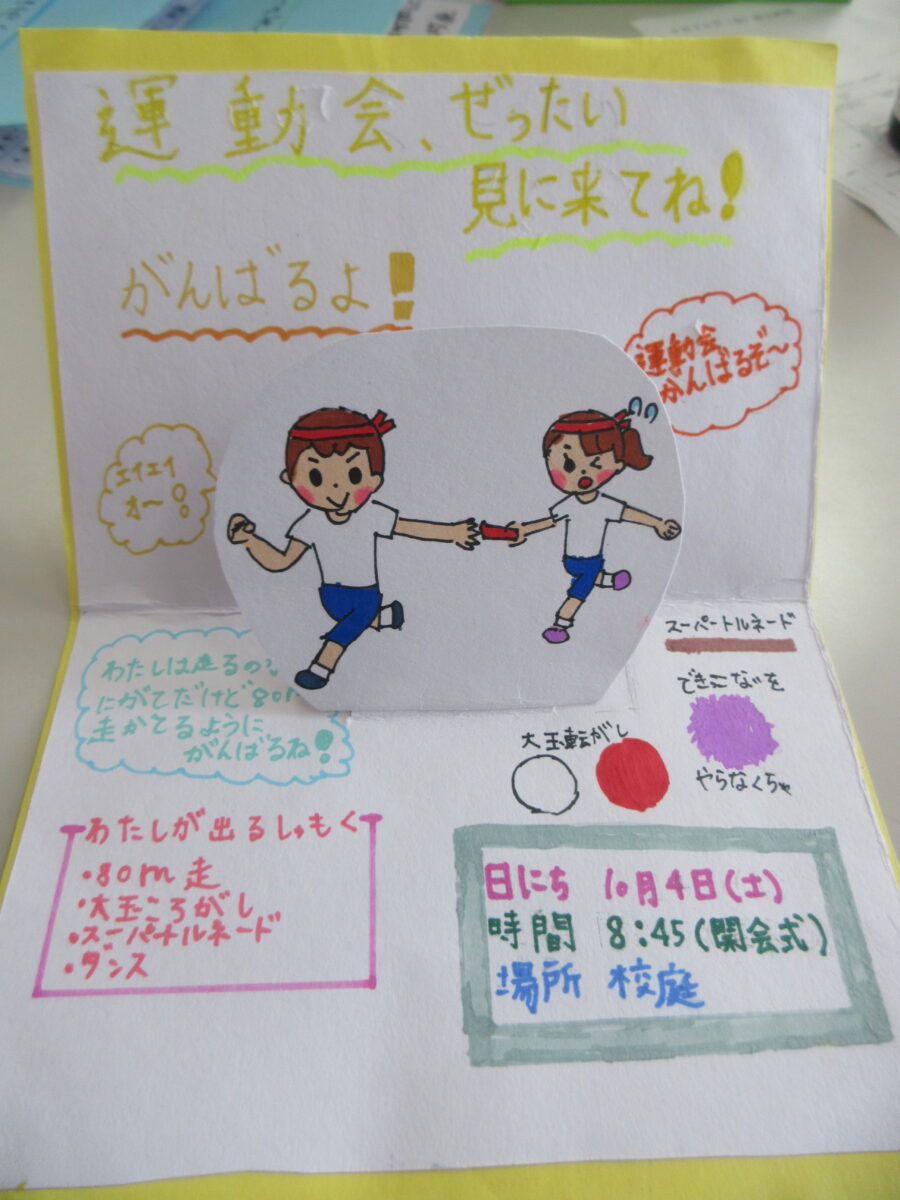 運動会、ぜったい
見に来てね!
がんばるよ!
運動会
がんばるぞ〜
エイエイ
オー!
わたしは走るの、
にがてだけど80m
走かてるように
がんばるね!
スーパートルネード
できこないを
やらなくちゃ
大玉転がし
わたしが出るしゅもく
・80m走
・大玉ころがし
・スーパートルネード
・ダンス
日にち 10月4日(土)
時間 8:45(開会式)
場所 校庭